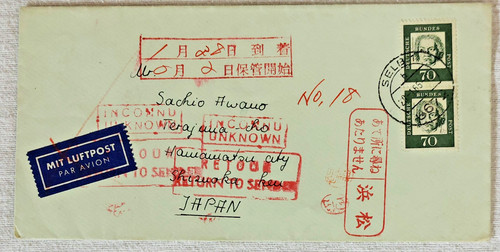 1月28日到着
2日保管開始
No, 18
Sachio Awano
Terajima
Hamamatsu city
Shizuoka Ken
JAPAN
INCONNU
UNKNOWN
INCONNU
UNKNOWN
RETOUR
RETURN TO SENDER
RETOUR
RETURN TO SENDER
MIT LUFTPOST
PAR AVION
あて所に尋ね
あたりません
浜松
SELB
DEUTSCHE
BUNDES
POST
70
DEUTSCHE
BUNDES
POST
70